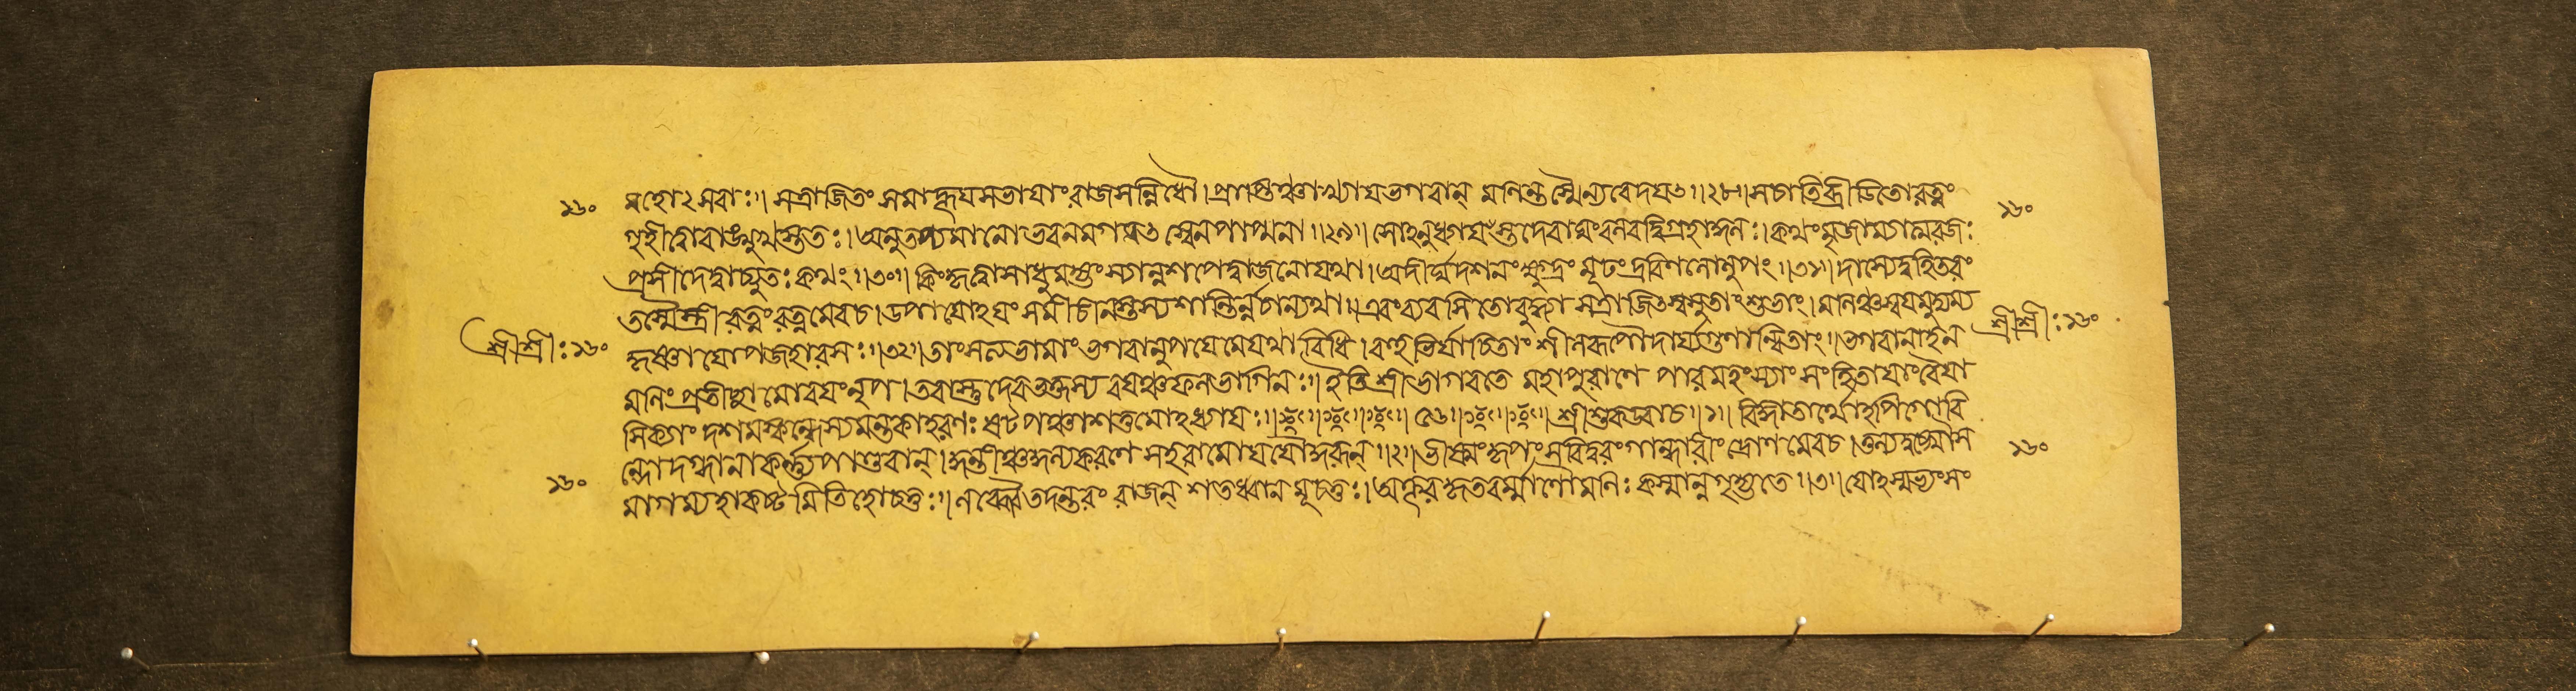 ১৬০
মহোৎসবাঃ।। সত্রাজিতং সমাহূয সভাযাং রাজসন্নিধৌ। প্রাপ্তিঞ্চাখ্যায ভগবান্ মণিন্তস্মৈন্যবেদযৎ।।২৮।। সচাতিব্রীডিতোরত্নং
১৬০
গৃহীত্বাবাঙ্মুখস্ততঃ। অনুতপ্যমানো ভবনমগমৎ স্বেনপাপ্মনা।।২৯।। সোঽনুধ্যাযংস্তদেবাঘং বলবদ্বিগ্রহাকুলঃ। কথং মৃজাম্যাত্মরজঃ
প্রসীদেদ্বাচ্যুতঃ কথং।।৩০।। কিংকৃত্বাসাধুমহ্যংস্যান্নশপেদ্বাজনোযথা। অদীর্ঘদর্শনং ক্ষুদ্রং মূঢং দ্রবিণলোলুপং।।৩১।। দাস্যেদুহিতরং
তস্মৈস্ত্রীরত্নংরত্নমেবচ। উপাযোঽযং সমীচীনস্তস্যশান্তির্ন্নচান্যথা।। এবংব্যবসিতোবুদ্ধ্যা সত্রাজিৎস্বসুতাংশুভাং। মণিঞ্চস্বযমুদ্যম্য
শ্রীশ্রীঃ ১৬০
শ্রীশ্রীঃ ১৬০
কৃষ্ণাযোপজহারসঃ।।৩২।। তাংসত্যভামাং ভগবানুপযেমেযথাবিধি। বহুভির্যাচিতাং শীলরূপৌদার্য্যগুণান্বিতাং।। ভগবানাহন
মণিং প্রতীচ্ছামোবযংনৃপ। তবাস্তুদেবভক্তস্য বযঞ্চফলভাগিনঃ।। ইতি শ্রীভাগবতে মহাপুরাণে পারমহংস্যাং সংহিতাযাংবৈযা
সিক্যাং দশমস্কন্ধেস্যমন্তকাহরণঃ ষট্পঞ্চাশত্তমোঽধ্যাযঃ।। ৫৬।। শ্রীশুকউবাচ।।১।। বিজ্ঞাতার্থোঽপিগোবি
ন্দোদগ্ধানাকর্ণ্ণ্যপাণ্ডবান্। কুন্তীঞ্চকুল্যকরণে সহরামোযযৌকুরূন্।।২।। ভীষ্মংকৃপংসবিদুরংগান্ধারীং দ্রোণমেবচ। তুল্যদুঃখৌস
১৬০
১৬০
মাগম্যহাকষ্টমিতিহোচতুঃ।। লব্ধ্বৈতদন্তরং রাজন্ শতধন্বানমূচতুঃ। অক্রূরকৃতবর্ম্মাণৌমণিঃ কস্মান্নগৃহ্যতে।।৩।। যোঽস্মভ্যংসং